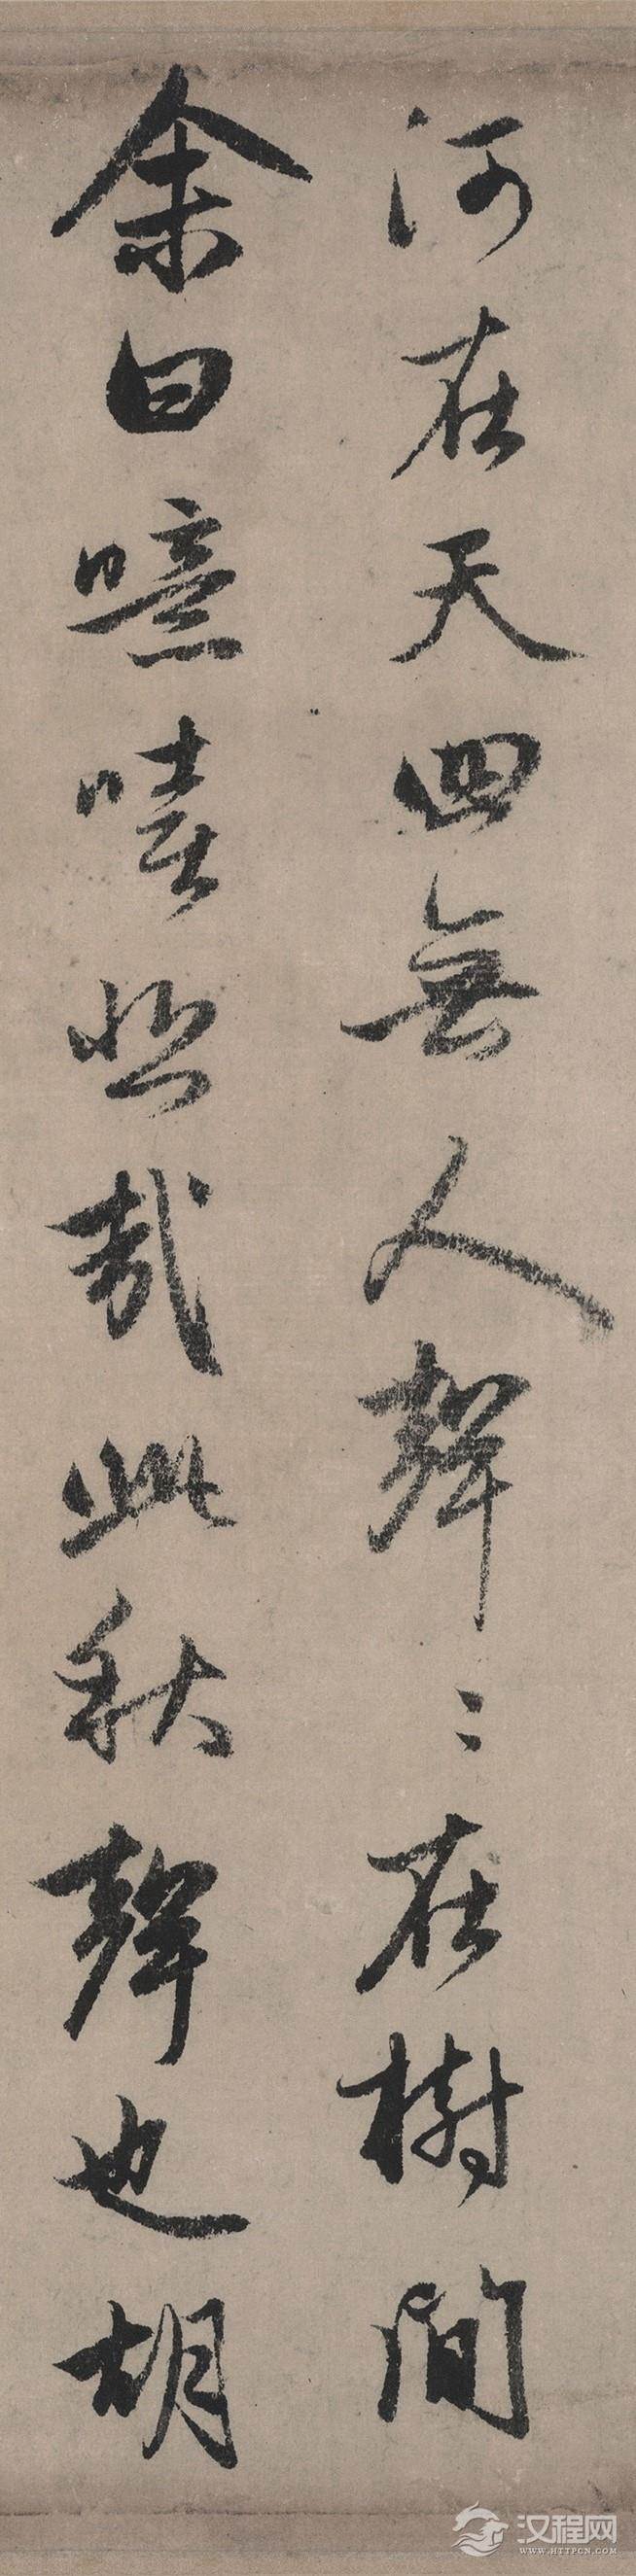 河在天四無人聲〻在樹間
余曰噫嘻悲哉此秋聲也胡
汉程网
WWW.HTTPCN.COM